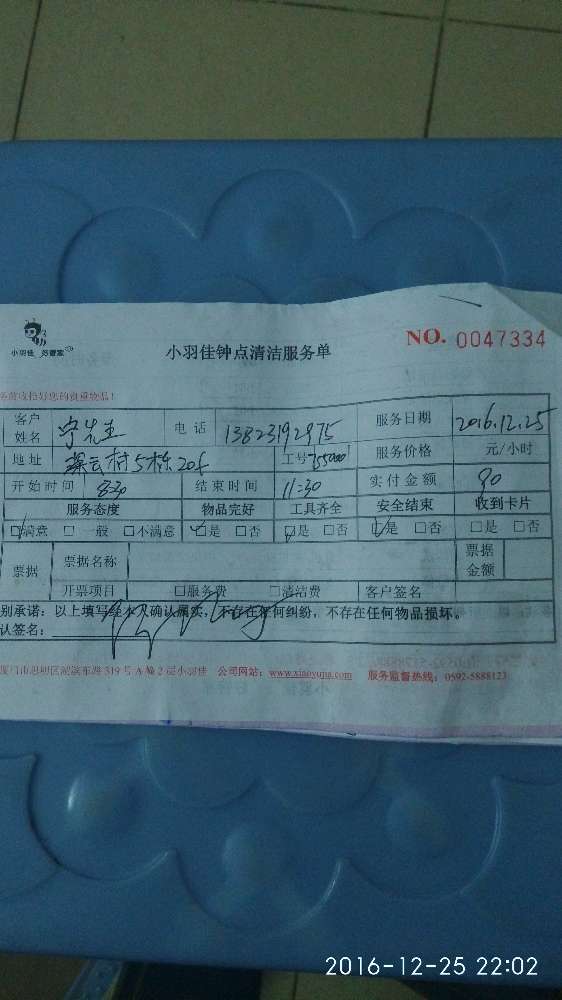 小羽佳 好管家
小羽佳钟点清洁服务单
NO. 0047334
收拾好您的贵重物品!
客户姓名 宁先生 电话 13823192975 服务日期 2016.12.25
地址 村5栋20f 工号 服务价格 元/小时
开始时间 8:30 结束时间 11:30 实付金额 90
服务态度 物品完好 工具齐全 安全结束 收到卡片
☑满意 □一般 □不满意 ☑是 □否 ☑是 □否 ☑是 □否 □是 □否
票据 票据名称 票据金额
开票项目 □服务费 □清洁费 客户签名
别承诺:以上填写经本人确认属实,不存在任何纠纷,不存在任何物品损坏。
认签名:
厦门市思明区湖滨东路 319 号 A 幢 2 层小羽佳 公司网站:www.xiaoyujia.com 服务监督热线:0592-5888123
2016-12-25 22:02